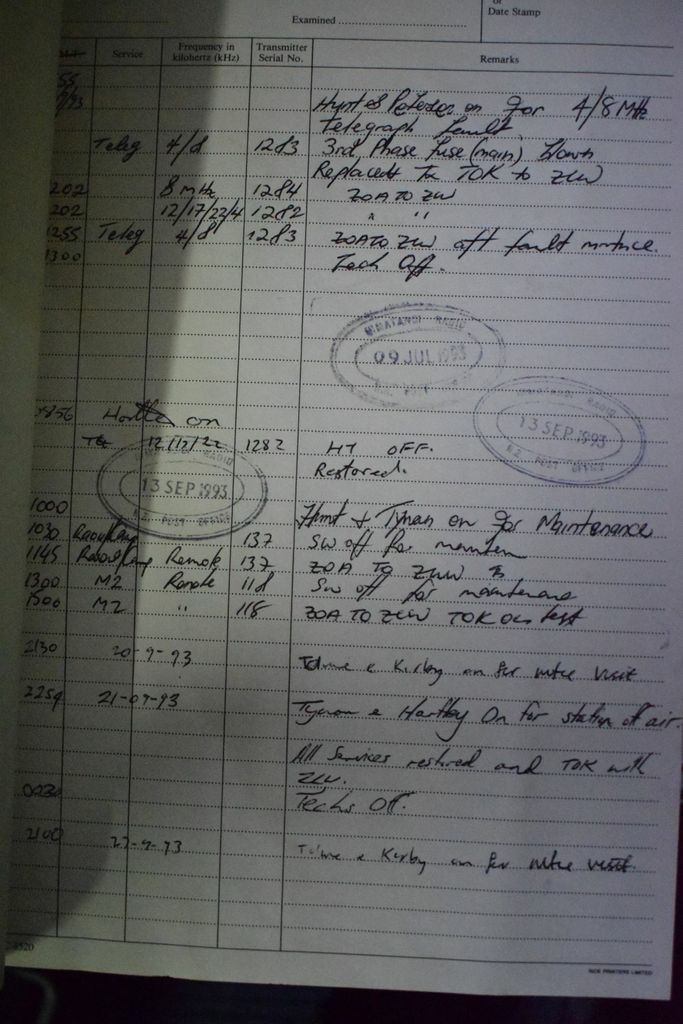 Examined
or
Date Stamp
Service Frequency in kilohertz (kHz) Transmitter Serial No. Remarks
on for 4/8 MHz
Telegraph fault
Teleg 4/8 1283 3rd Phase fuse (main) blown
Replaced Tx TOK to ZLW
202 8 MHz 1284 ZOA TO ZLW
202 12/17/22/4 1282 " "
1255 Teleg 4/8 1283 ZOA TO ZLW aft fault mntnce.
1300 Tech Off.
HIMATANGI RADIO
09 JUL 1993
HIMATANGI RADIO
13 SEP 1993
N.Z. POST OFFICE
on
12/17/22 1282 HT OFF.
Restored.
13 SEP 1993
N.Z. POST OFFICE
1000 Hunt & Tynan on for Maintenance
1030 137 SW off for
1145 Remote 137 ZOA TO ZLW
1300 M2 Remote 118 SW off for maintenance
1500 M2 " 118 ZOA TO ZLW TOK on test
2130 20-9-93 & Kirby on for mtce visit
2259 21-09-93 Tynan & Hartley On for station off air.
All Services restored and TOK with
ZLW.
Techs Off.
2100 27-9-93 & Kirby on for mtce visit